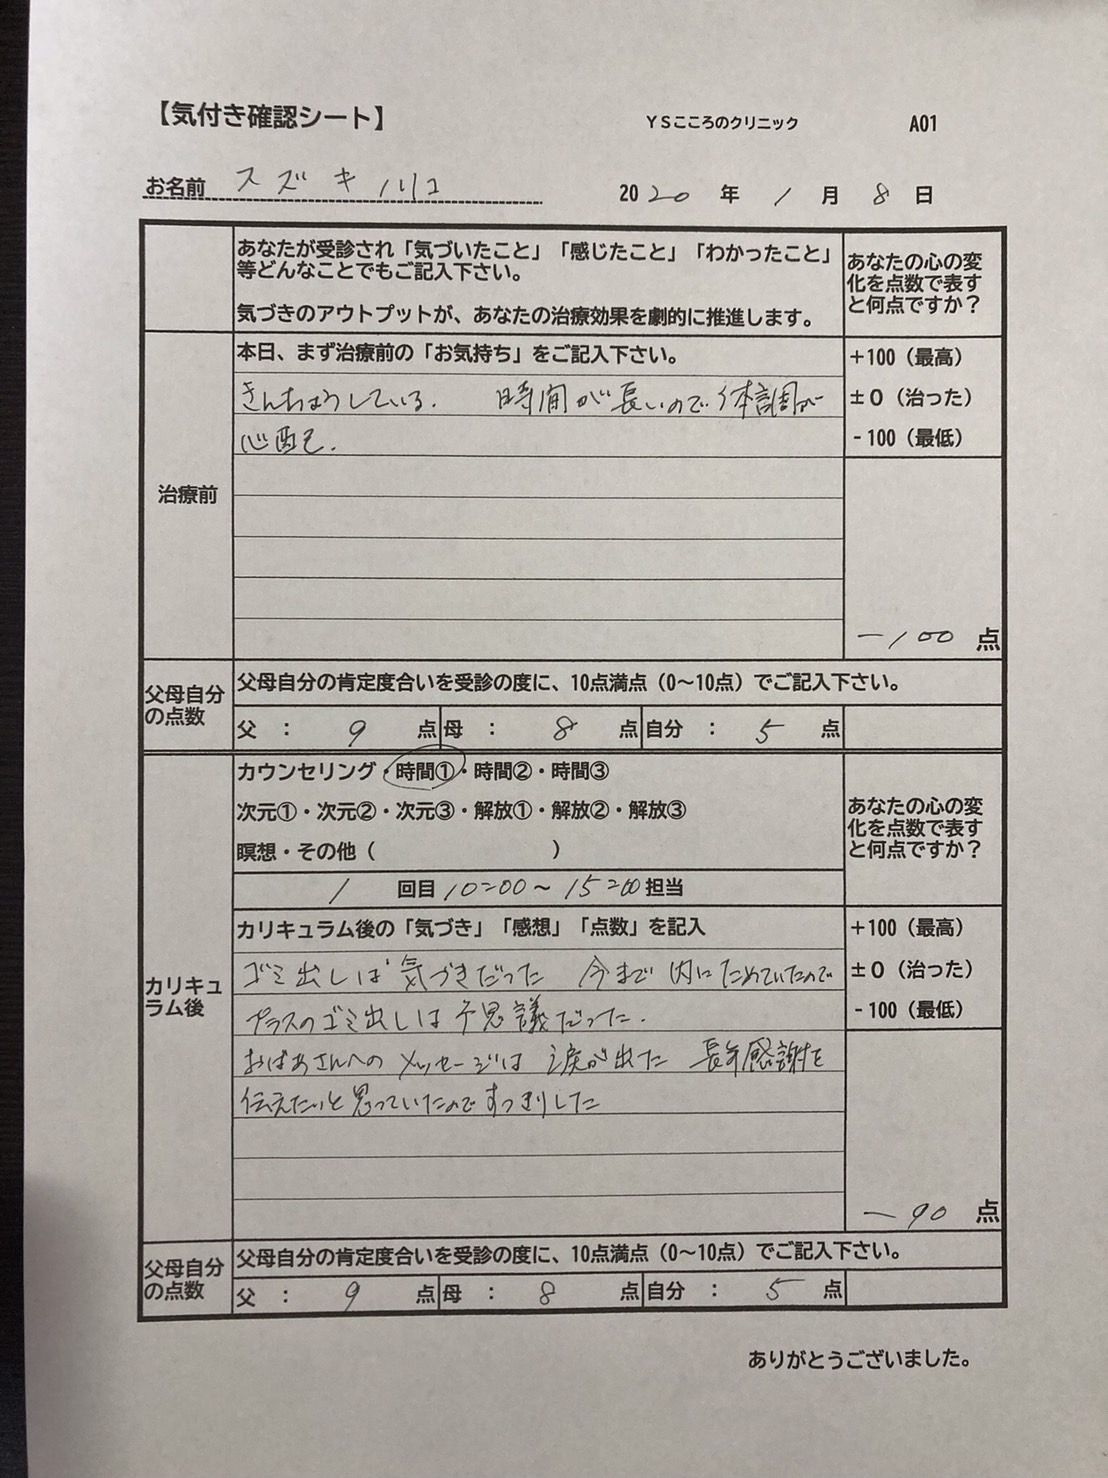 【気付き確認シート】
ＹＳこころのクリニック
A01
お名前 スズキ
2020年1月8日
あなたが受診され「気づいたこと」「感じたこと」「わかったこと」
等どんなことでもご記入下さい。
気づきのアウトプットが、あなたの治療効果を劇的に推進します。
あなたの心の変
化を点数で表す
と何点ですか？
治療前
本日、まず治療前の「お気持ち」をご記入下さい。
きんちょうしている. 時間が長いので体調が
心配だ.
+100（最高）
±0（治った）
-100（最低）
-100 点
父母自分
の点数
父母自分の肯定度合いを受診の度に、10点満点（0～10点）でご記入下さい。
父 ： 9 点 母 ： 8 点 自分 ： 5 点
カリキュ
ラム後
カウンセリング・時間①・時間②・時間③
次元①・次元②・次元③・解放①・解放②・解放③
瞑想・その他（ ）
1 回目 10=00～15=00 担当
あなたの心の変
化を点数で表す
と何点ですか？
カリキュラム後の「気づき」「感想」「点数」を記入
ゴミ出しは 気づきだった 今まで 内にためていたので
プラスのゴミ出しは 不思議だった.
おばあさんへの メッセージは 涙が出た 長年感謝を
伝えたいと思っていたのですっきりした
+100（最高）
±0（治った）
-100（最低）
-90 点
父母自分
の点数
父母自分の肯定度合いを受診の度に、10点満点（0～10点）でご記入下さい。
父 ： 9 点 母 ： 8 点 自分 ： 5 点
ありがとうございました。